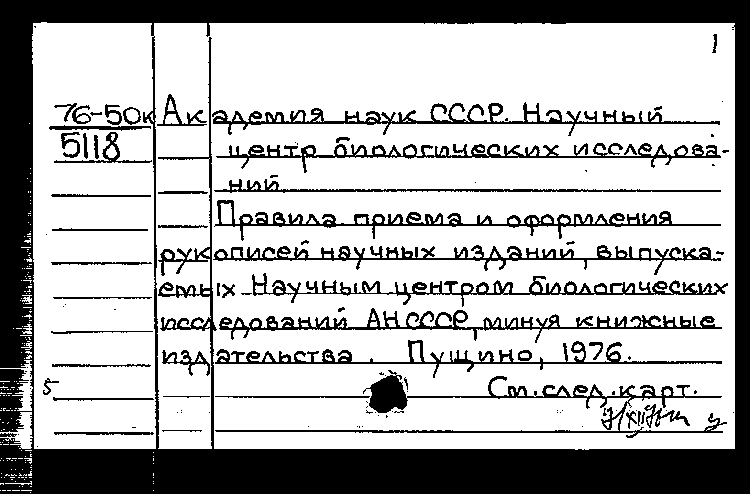 1
76-50к Академия наук СССР. Научный
5118 центр биологических исследова-
ний.
Правила приема и оформления
рукописей научных изданий, выпуска-
емых Научным центром биологических
исследований АН СССР, минуя книжные
издательства. Пущино, 1976.
5 См. след. карт.